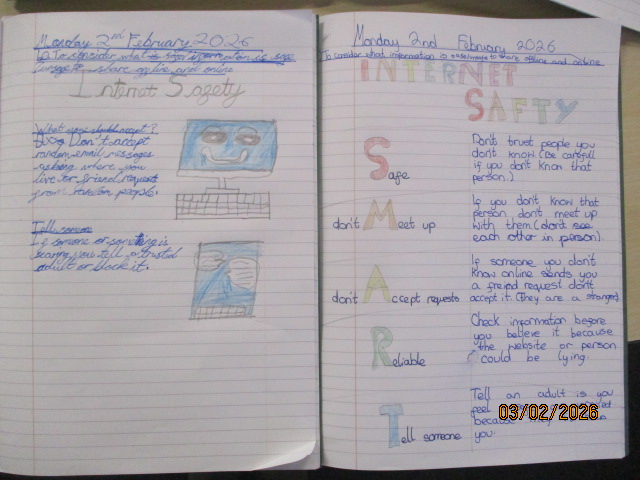 Monday 2nd February 2026
LO: To consider what information is safe
to share offline and online
Internet Safety
What should accept?
Don't accept
random email messages
asking where you
live for friend request
from random people.
Tell someone
If someone or something is
scaring you tell a trusted
adult or block it.
Monday 2nd February 2026
To consider what information is safe to share offline and online
INTERNET
SAFTY
Safe
Don't trust people you
don't know (Be careful
if you don't know that
person.)
don't Meet up
If you don't know that
person don't meet up
with them (don't see
each other in person).
don't Accept requests
If someone you don't
know online sends you
a friend request don't
accept it. (They are a stranger)
Reliable
Check information before
you believe it because
the website or person
could be lying.
Tell someone
Tell an adult is you
feel
because
you.
03/02/2026